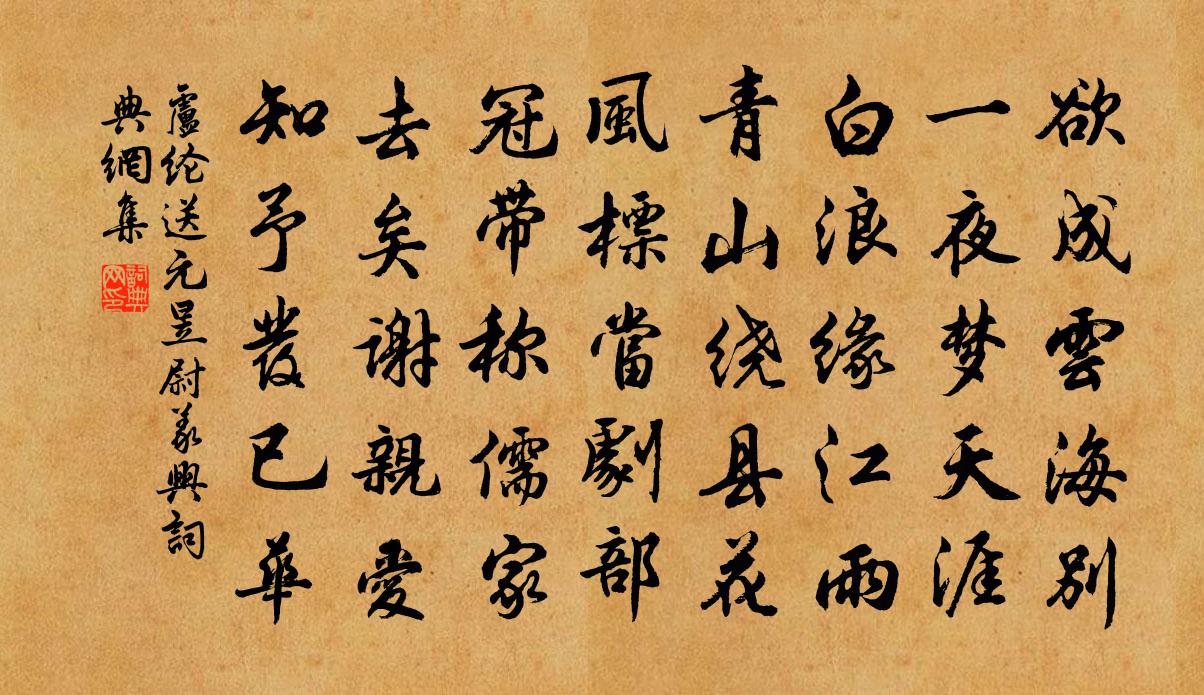 欲成雲海别
一夜梦天涯
白浪缘江雨
青山绕县花
風標當劇部
冠带称儒家
去矣謝親愛
知予發已華
盧纶送元昱尉義興詞
典網集
詞典
网印